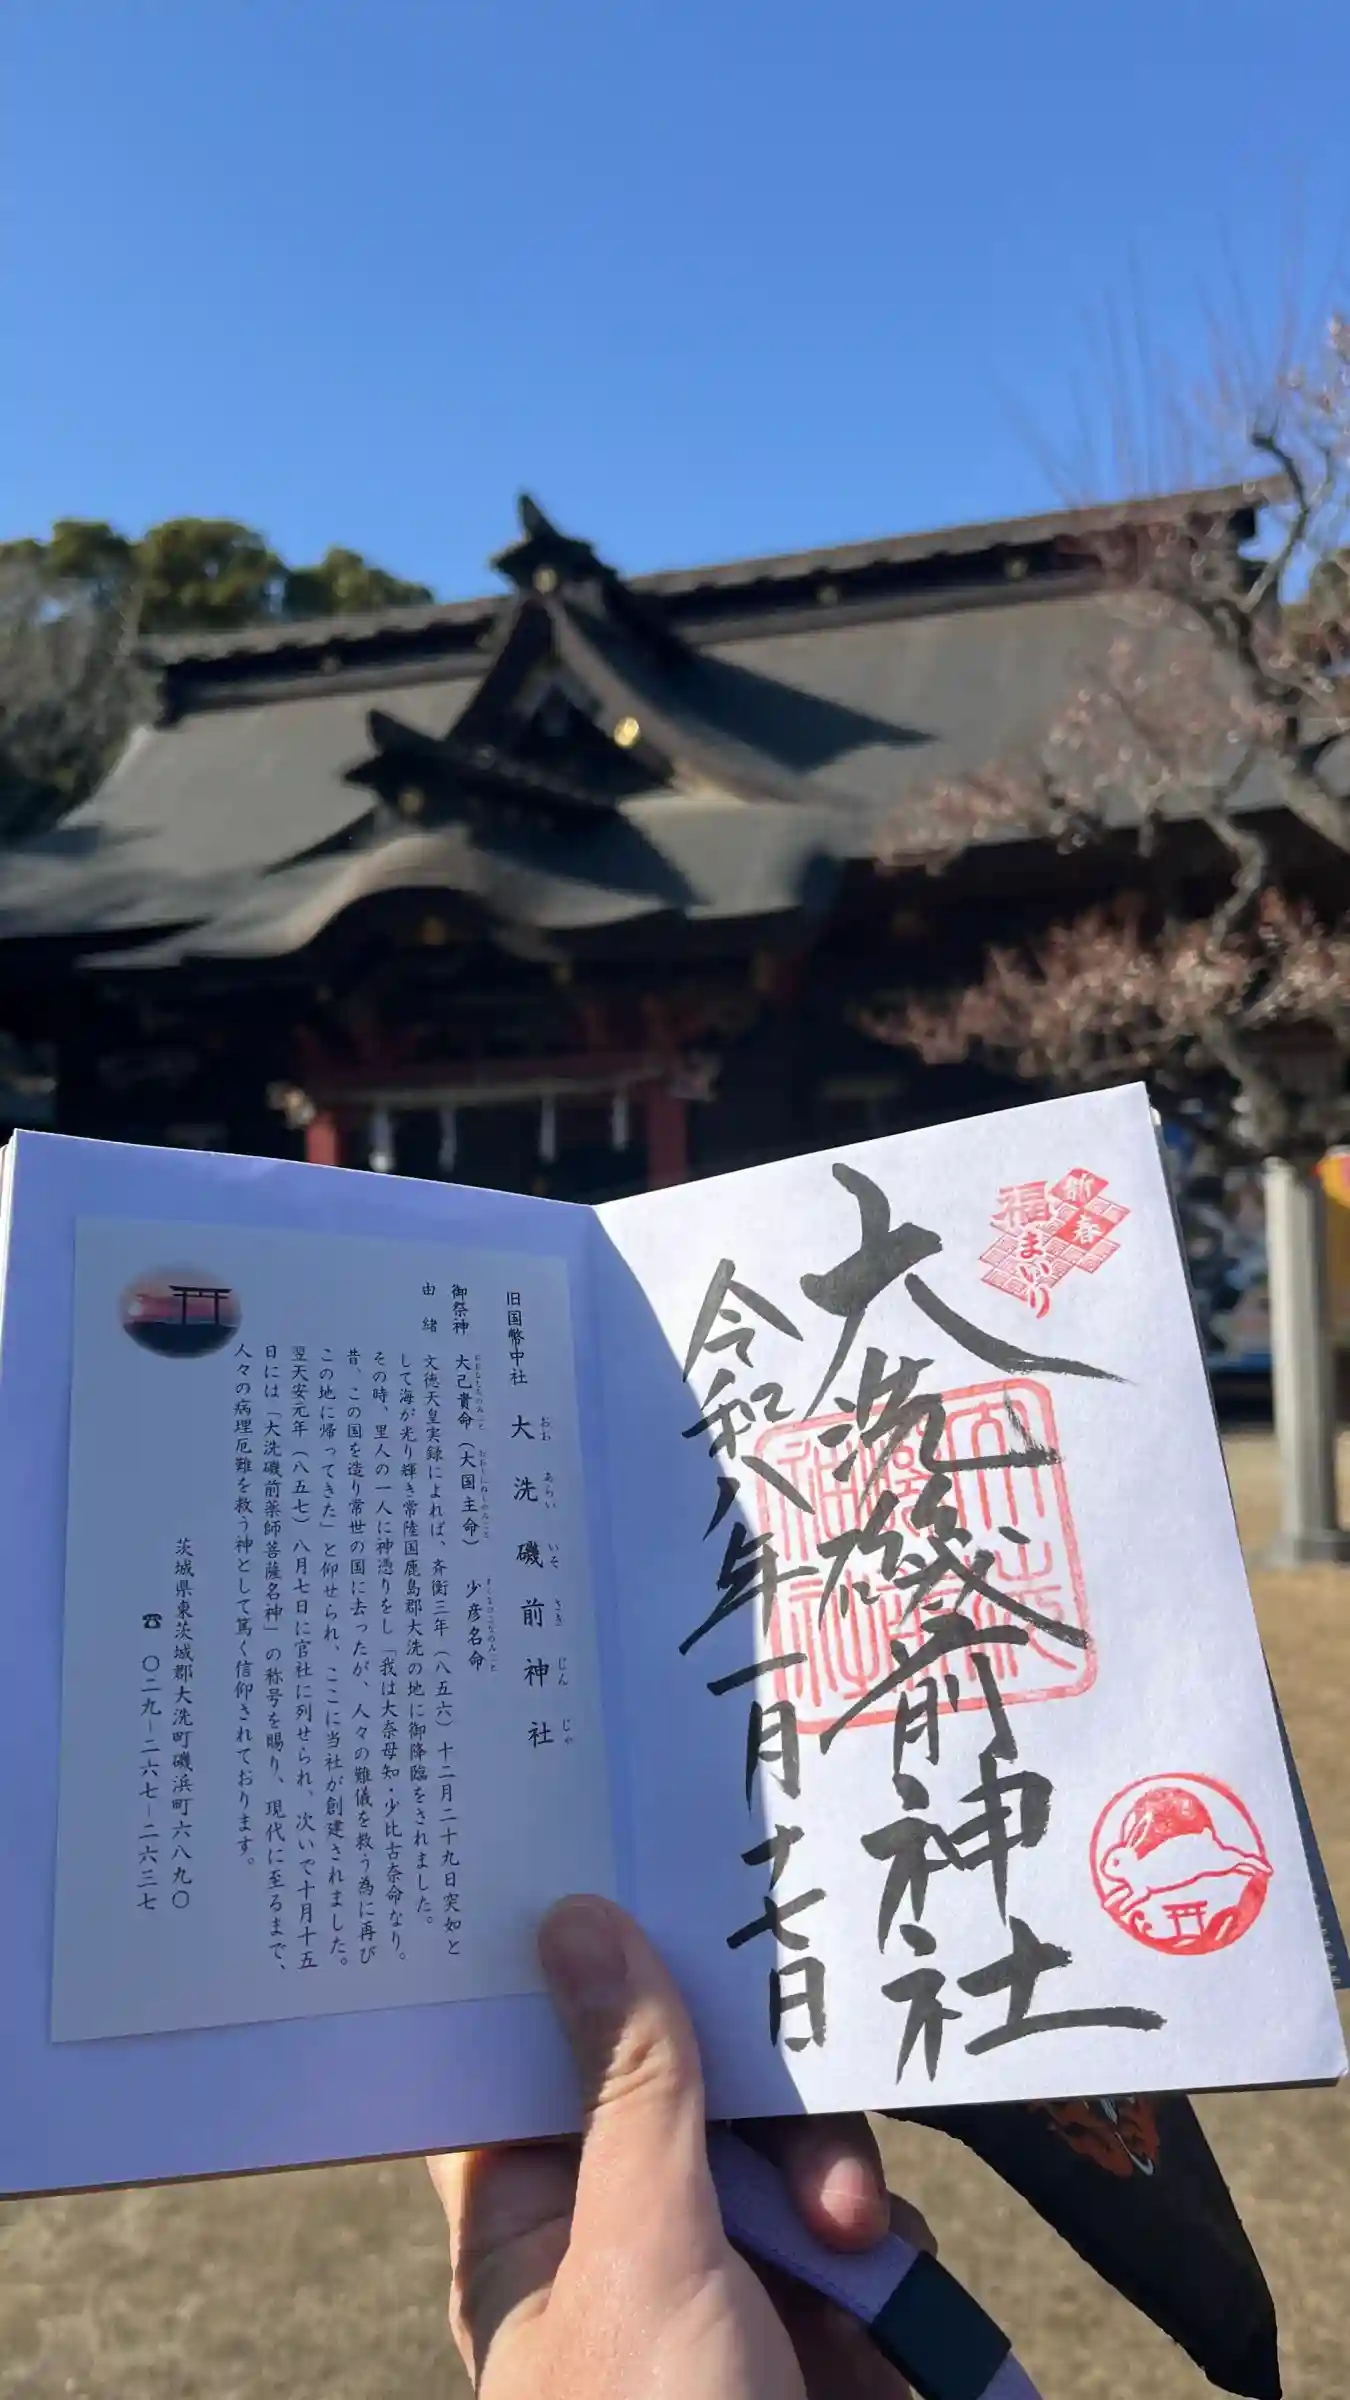 新春
福まいり
大洗磯前神社
令和八年一月十七日
大洗磯前神社
旧国幣中社 大洗磯前神社
おお あらい いそ さき じん じゃ
御祭神 大己貴命(大国主命) 少彦名命
おおなむちのみこと おおくにぬしのみこと すくなひこなのみこと
由緒 文徳天皇実録によれば、斉衡三年(八五六)十二月二十九日突如と
して海が光り輝き常陸国鹿島郡大洗の地に御降臨をされました。
その時、里人の一人に神憑りをし「我は大奈母知・少比古奈命なり。
昔、この国を造り常世の国に去ったが、人々の難儀を救う為に再び
この地に帰ってきた」と仰せられ、ここに当社が創建されました。
翌天安元年(八五七)八月七日に官社に列せられ、次いで十月十五
日には「大洗磯前薬師菩薩名神」の称号を賜り、現代に至るまで、
人々の病理厄難を救う神として篤く信仰されております。
茨城県東茨城郡大洗町磯浜町六八九〇
☎ 〇二九-二六七-二六三七